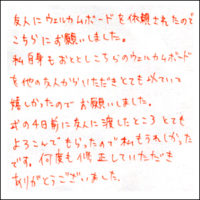 友人にウェルカムボードを依頼されたので
こちらにお願いしました。
私自身もおととしこちらのウェルカムボード
を他の友人からいただきとても似ていて
嬉しかったので お願いしました。
式の4日前に友人に渡したところ とても
よろこんで もらったので 私もうれしかった
です。何度も修正していただき
ありがとうございました。